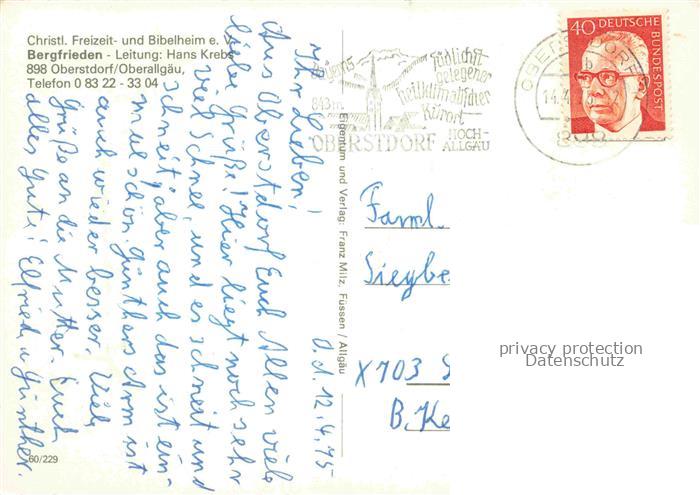 Christl. Freizeit- und Bibelheim e. V.
Bergfrieden - Leitung: Hans Krebs
898 Oberstdorf/Oberallgäu,
Telefon 0 83 22 - 33 04
O.d. 12.4.75
Ihr Lieben!
Aus Oberstdorf Euch Allen viele
liebe Grüße! Hier liegt noch sehr
viel Schnee, und es schneit und
schneit, aber auch das ist ein-
mal schön. Günthers Arm ist
auch wieder besser. Viele
Grüße an die Mutter. Euch
alles Gute! Elfried u Günther.
60/229
Eigentum und Verlag: Franz Milz, Füssen / Allgäu
Bayerns
südlichst
gelegener
heilklimatischer
Kurort
843m
OBERSTDORF
HOCH-
ALLGÄU
40 DEUTSCHE
BUNDESPOST
Faml.
X 703
B. Ke
privacy protection
Datenschutz